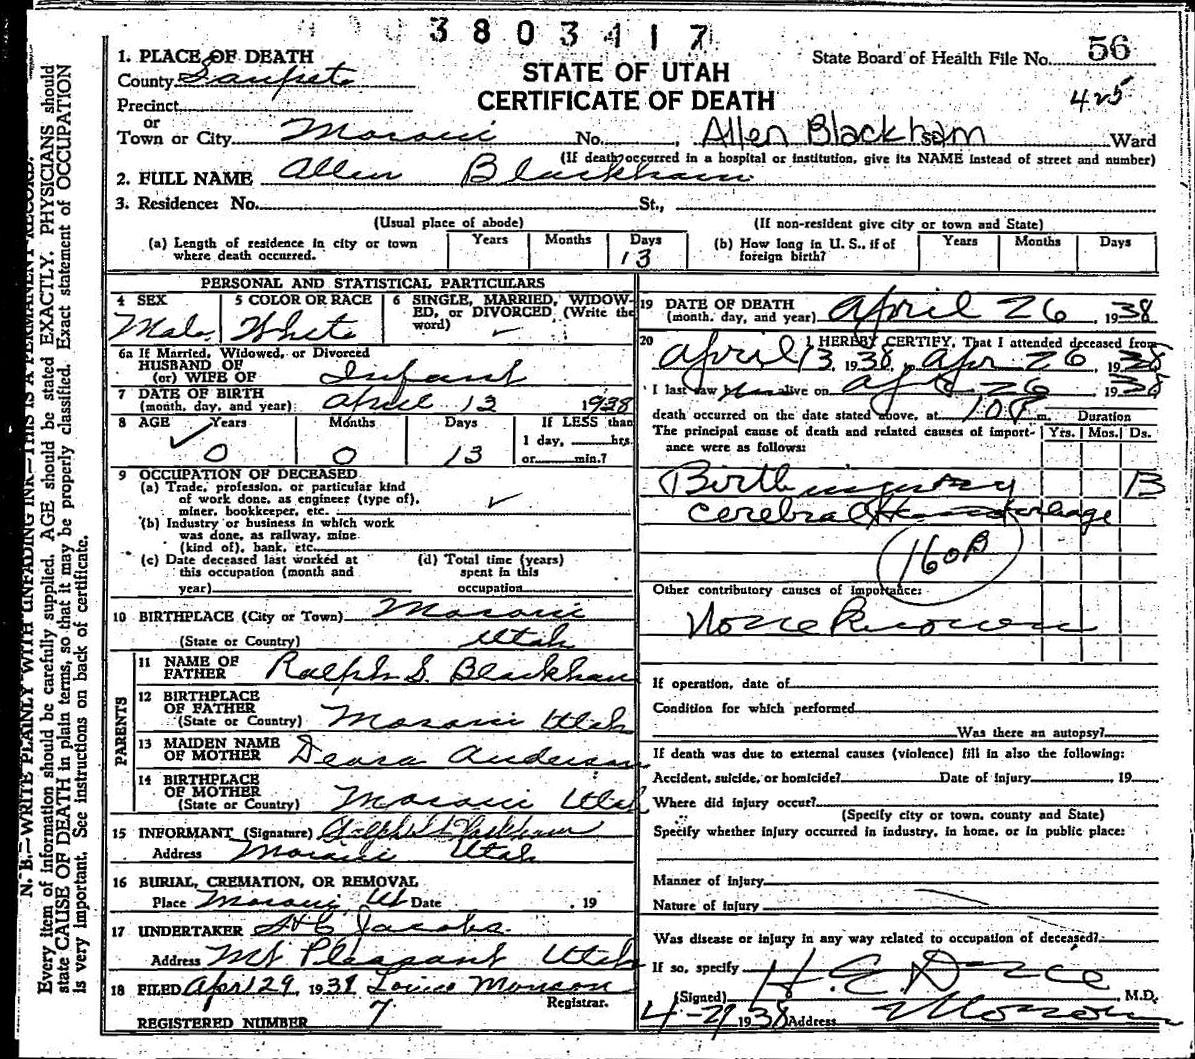 3803417
1. PLACE OF DEATH
County Sanpete
STATE OF UTAH
CERTIFICATE OF DEATH
State Board of Health File No. 56
425
Precinct
or
Town or City Moroni No. , Allen Blackham Ward
(If death occurred in a hospital or institution, give its NAME instead of street and number)
2. FULL NAME Allen Blackham
3. Residence: No. St.,
(Usual place of abode) (If non-resident give city or town and State)
(a) Length of residence in city or town where death occurred. Years Months Days 13
(b) How long in U. S., if of foreign birth? Years Months Days
PERSONAL AND STATISTICAL PARTICULARS
4 SEX Male
5 COLOR OR RACE White
6 SINGLE, MARRIED, WIDOWED, or DIVORCED (Write the word)
6a If Married, Widowed, or Divorced
HUSBAND OF
(or) WIFE OF Infant
7 DATE OF BIRTH
(month, day, and year) April 13 1938
8 AGE Years Months Days If LESS than
0 0 13 1 day, hrs.
or min.?
9 OCCUPATION OF DECEASED
(a) Trade, profession, or particular kind
of work done, as engineer (type of),
miner, bookkeeper, etc.
(b) Industry or business in which work
was done, as railway, mine
(kind of), bank, etc.
(c) Date deceased last worked at
this occupation (month and
year)
(d) Total time (years)
spent in this
occupation
10 BIRTHPLACE (City or Town) Moroni
(State or Country) Utah
PARENTS
11 NAME OF
FATHER Ralph S. Blackham
12 BIRTHPLACE
OF FATHER
(State or Country) Moroni Utah
13 MAIDEN NAME
OF MOTHER Anderson
14 BIRTHPLACE
OF MOTHER
(State or Country) Moroni Utah
15 INFORMANT (Signature) Ralph S Blackham
Address Moroni Utah
16 BURIAL, CREMATION, OR REMOVAL
Place Moroni, Ut Date , 19
17 UNDERTAKER Jacobs
Address Mt Pleasant Utah
18 FILED Apr 29, 1938 Louise Monson
Registrar.
REGISTERED NUMBER 7
19 DATE OF DEATH
(month, day, and year) April 26, 1938
20 I HEREBY CERTIFY, That I attended deceased from
April 13, 1938, Apr 26, 1938
I last saw him alive on Apr 26, 1938
death occurred on the date stated above, at 10 P m. Duration
The principal cause of death and related causes of import- Yrs. Mos. Ds.
ance were as follows:
Birth injury 13
cerebral Hemorrhage
160B
Other contributory causes of importance:
None Known
If operation, date of
Condition for which performed
Was there an autopsy?
If death was due to external causes (violence) fill in also the following:
Accident, suicide, or homicide? Date of injury , 19
Where did injury occur?
(Specify city or town, county and State)
Specify whether injury occurred in industry, in home, or in public place:
Manner of injury
Nature of injury
Was disease or injury in any way related to occupation of deceased?
If so, specify
(Signed) H. E. , M.D.
4-29 1938 Address Moroni
N. B.—WRITE PLAINLY WITH UNFADING INK—THIS IS A PERMANENT RECORD.
Every item of information should be carefully supplied. AGE should be stated EXACTLY. PHYSICIANS should
state CAUSE OF DEATH in plain terms, so that it may be properly classified. Exact statement of OCCUPATION
is very important. See instructions on back of certificate.